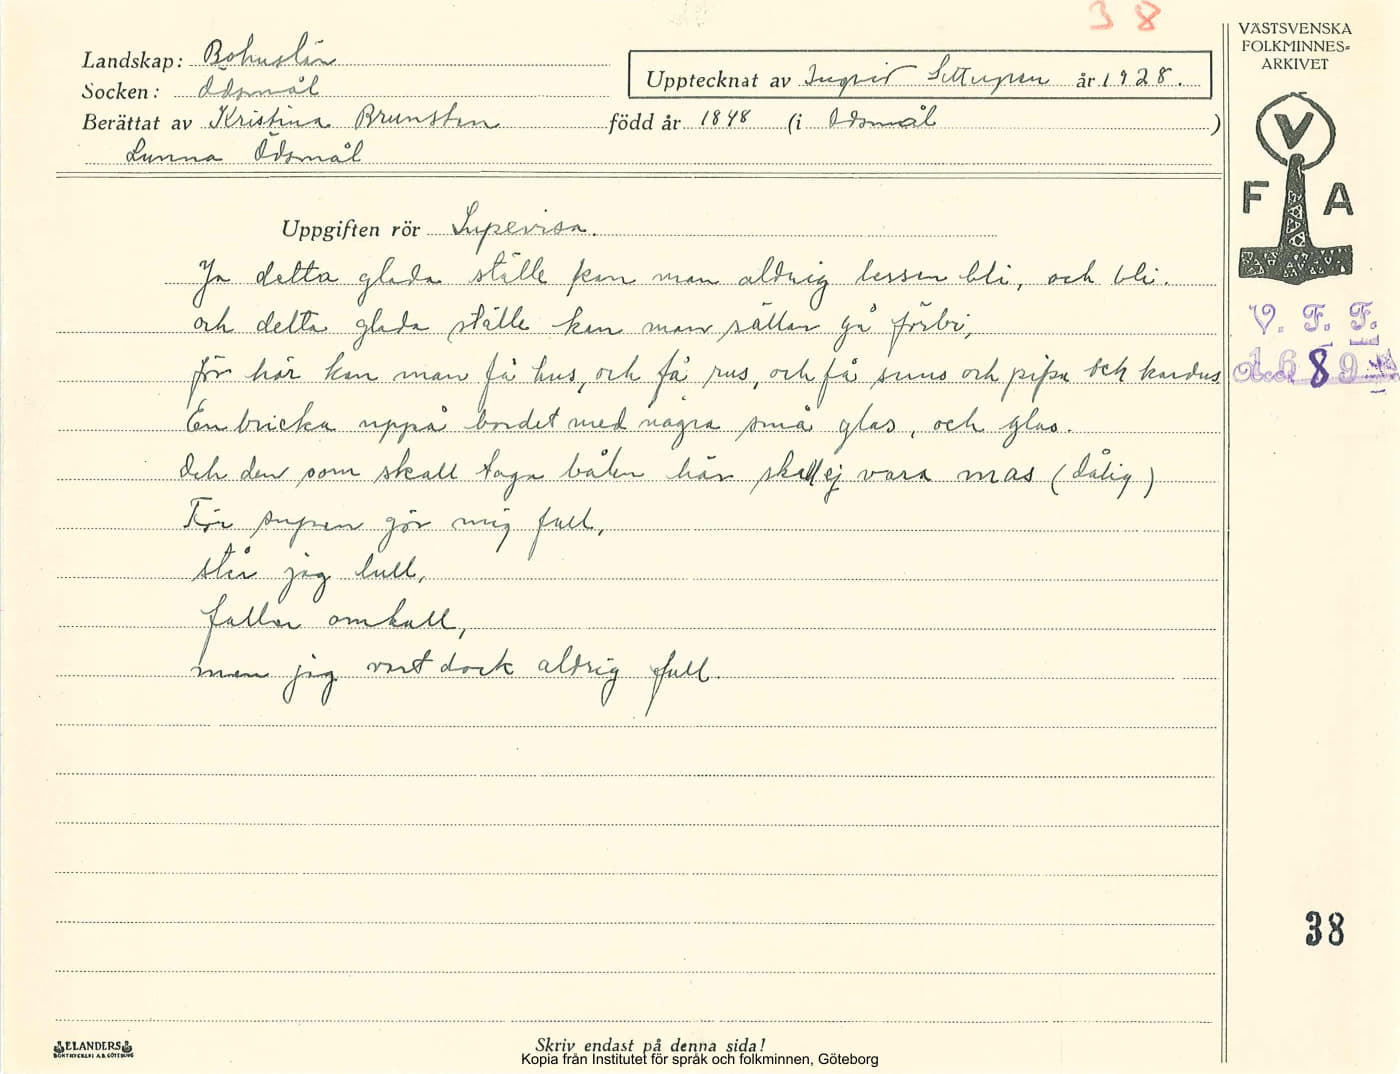 38
VÄSTSVENSKA
FOLKMINNES-
ARKIVET
Landskap: Bohuslän
Socken: Ödsmål
Upptecknat av Ingrid år 1928.
Berättat av Kristina Brunsten född år 1848 (i Ödsmål)
Lunna Ödsmål
V
F A
Uppgiften rör Supevisa.
Ja detta glada ställe kan man aldrig lessen bli, och bli.
och detta glada ställe kan man sällan gå förbi,
för här kan man få hus, och få rus, och få snus och pipa och kardus
En bricka uppå bordet med några små glas, och glas.
Och den som skall taga bålen här skall ej vara mas (dålig)
För supen gör mig full,
står jag lull,
faller omkull,
men jag vart dock aldrig full.
V. F. F.
38
ELANDERS
BOKTRYCKERI A.B. GÖTEBORG
Skriv endast på denna sida!
Kopia från Institutet för språk och folkminnen, Göteborg